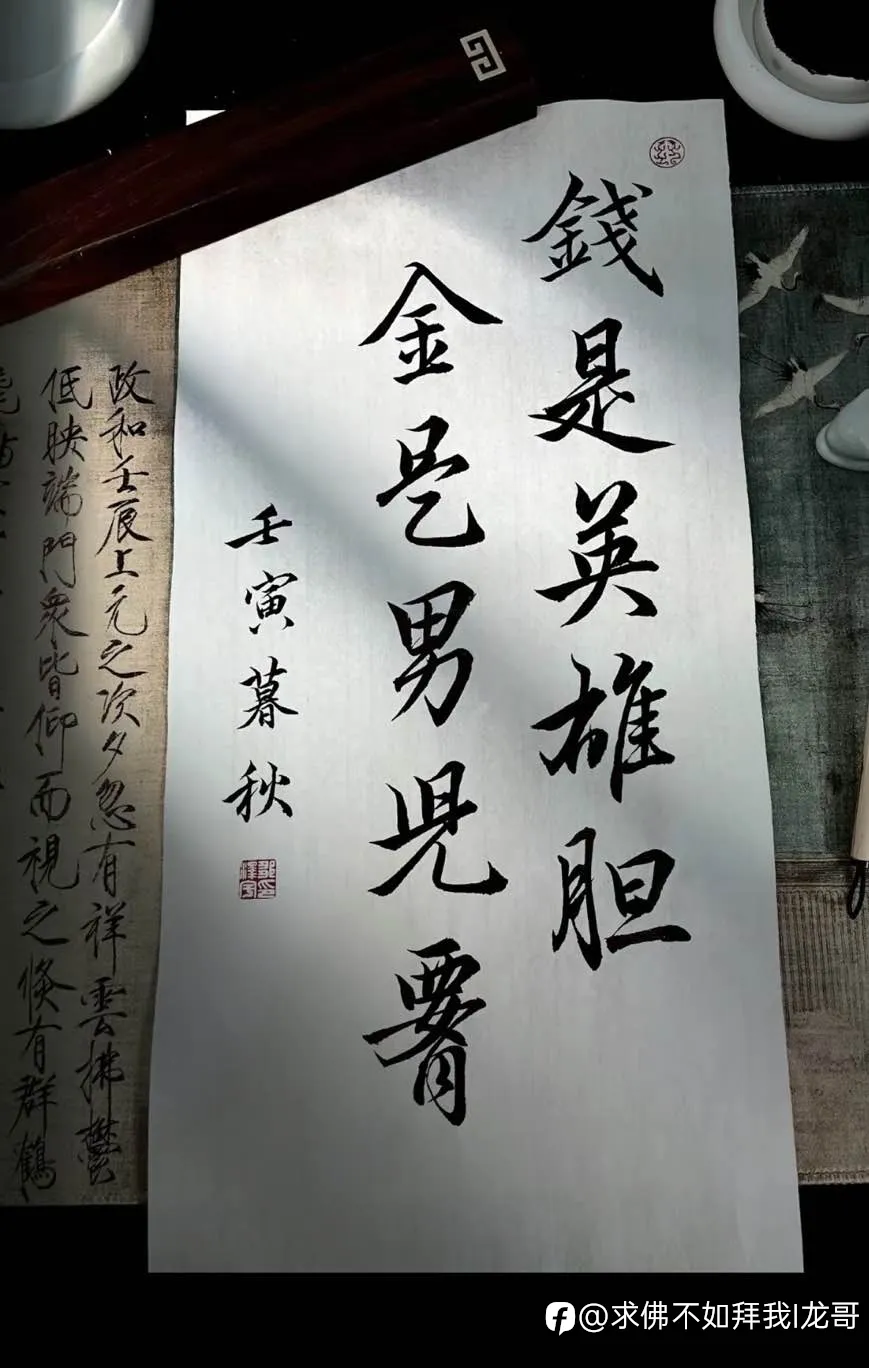 錢是英雄胆
金是男児要月
壬寅暮秋
政和壬辰上元之次夕忽有祥雲拂鬱
低映端門衆皆仰而視之倐有群鶴
@求佛不如拜我I龙哥